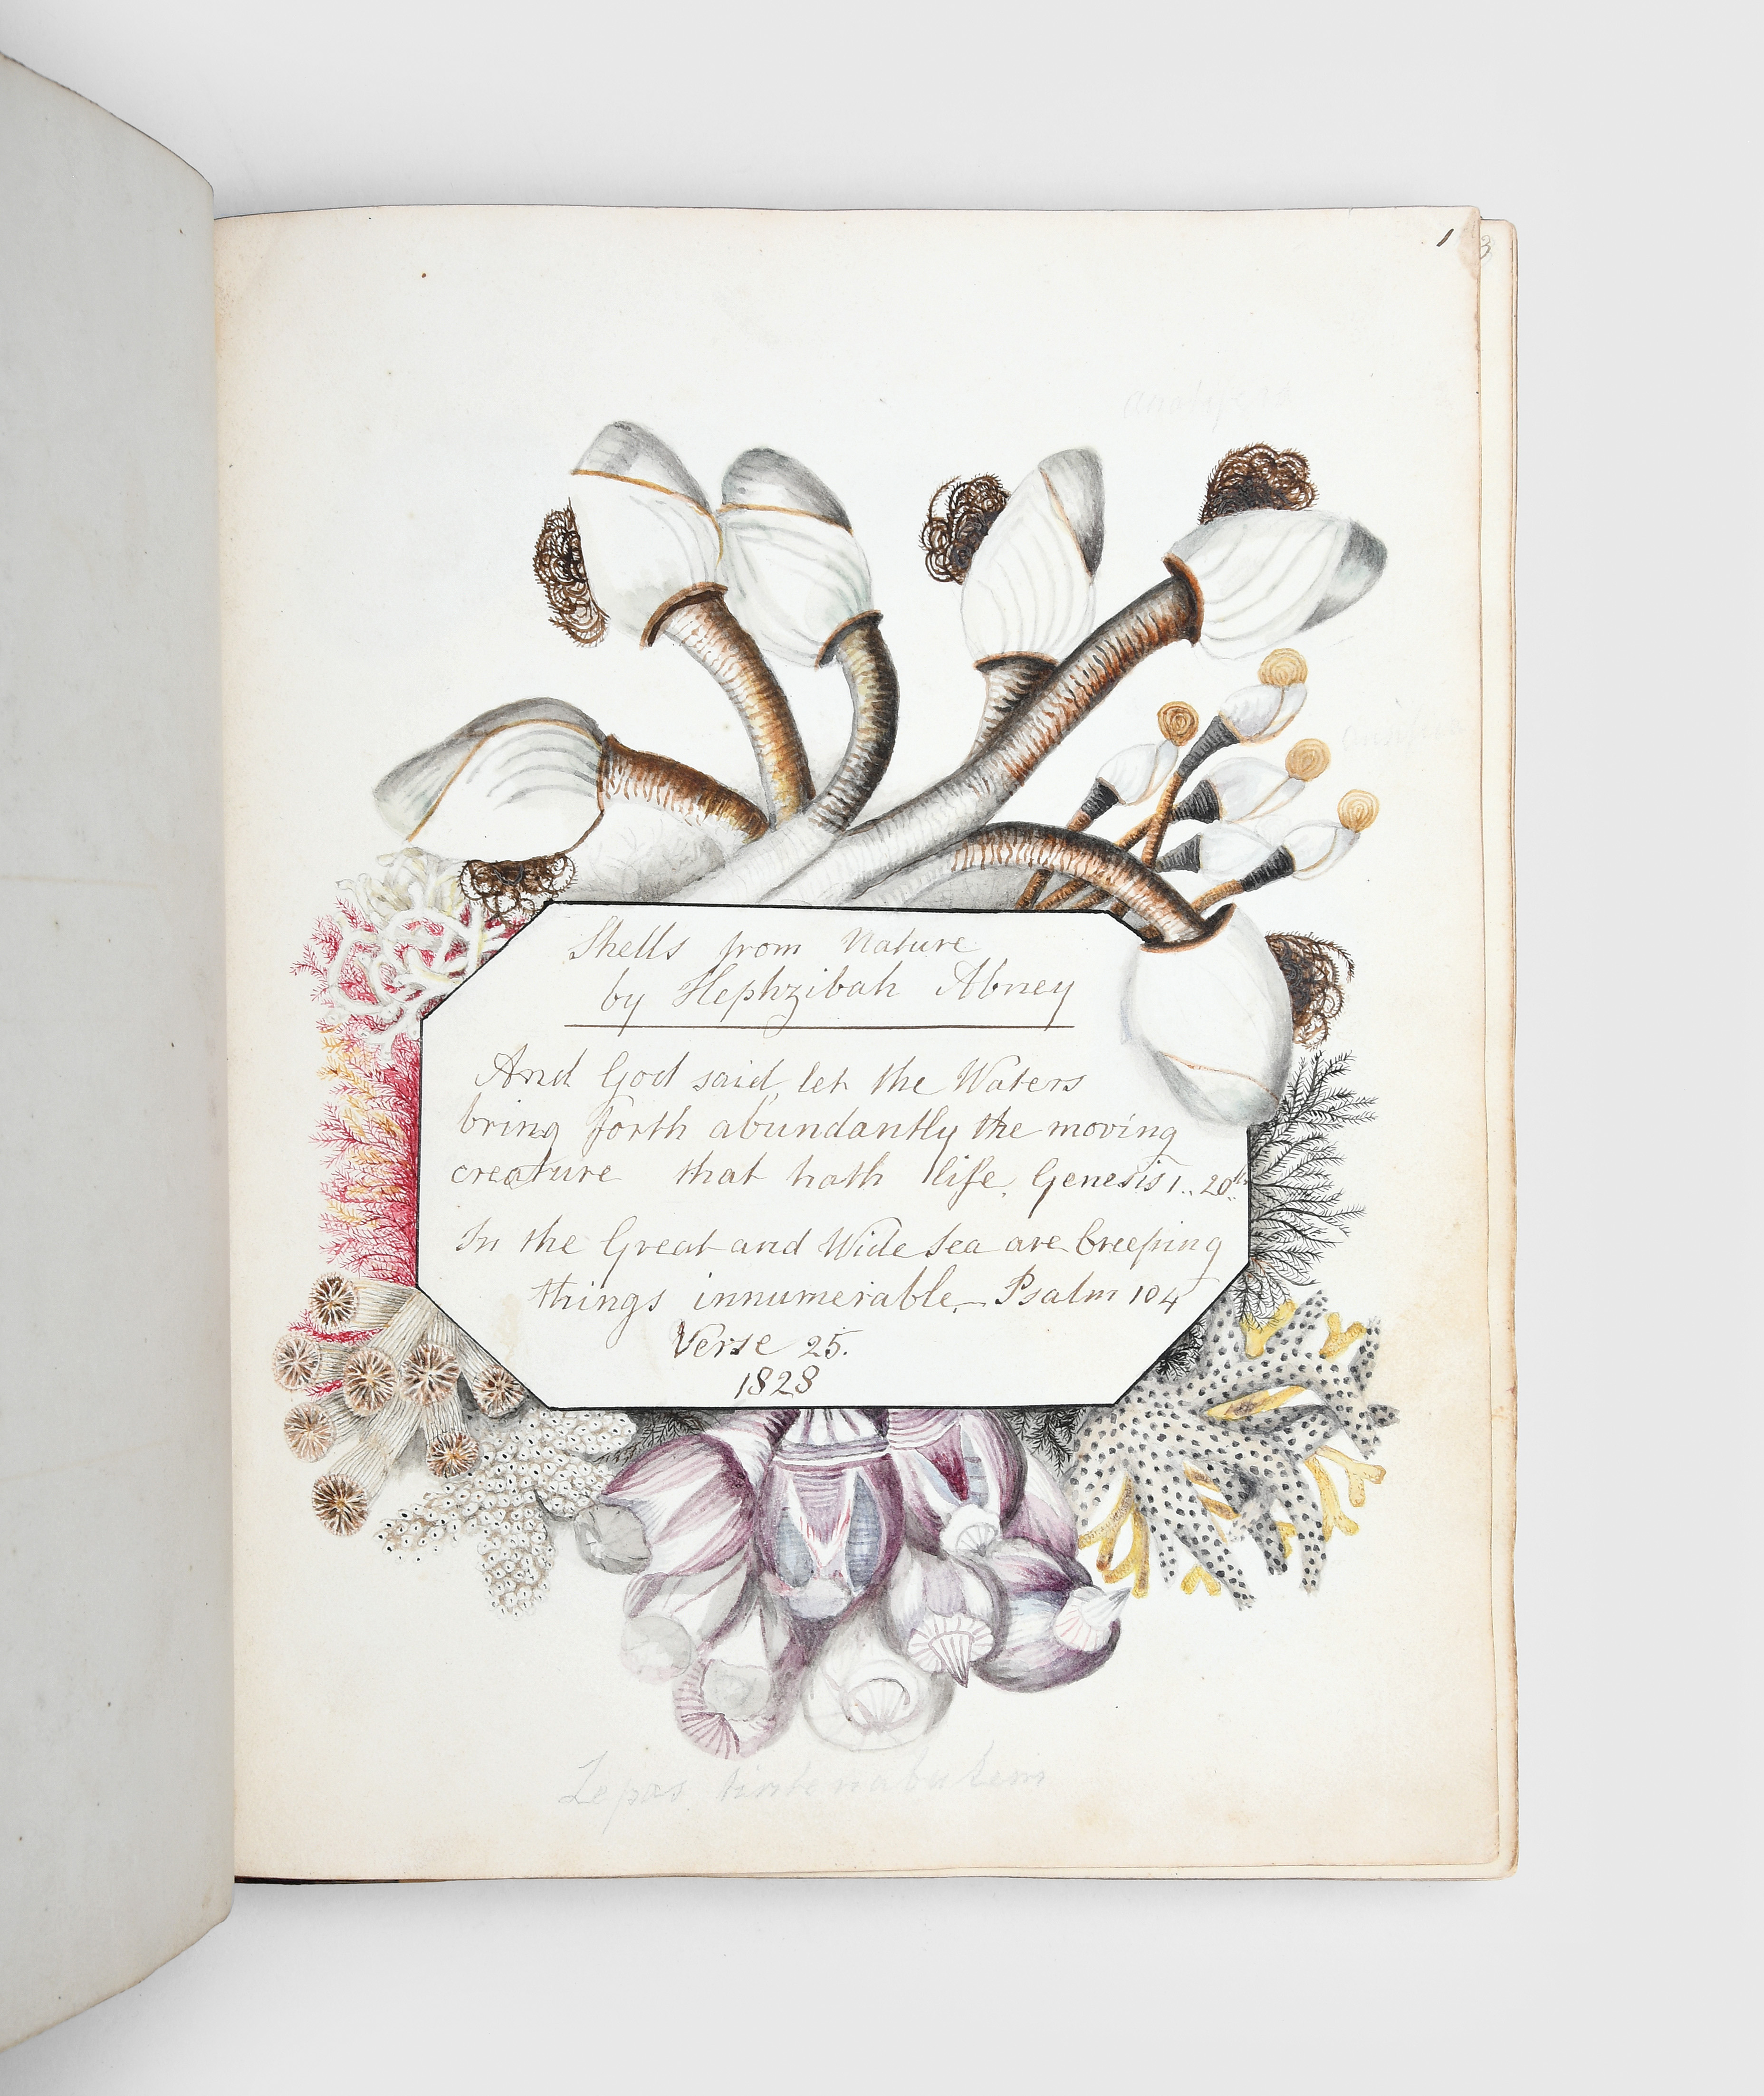 1
3
Shells from Nature
by Hephzibah Abney
And God said, let the Waters
bring forth abundantly the moving
creature that hath life. Genesis 1.. 20th..
In the Great and Wide Sea are Creeping
things innumerable_ Psalm 104
Verse 25.
1828
Lepas tintenabulem